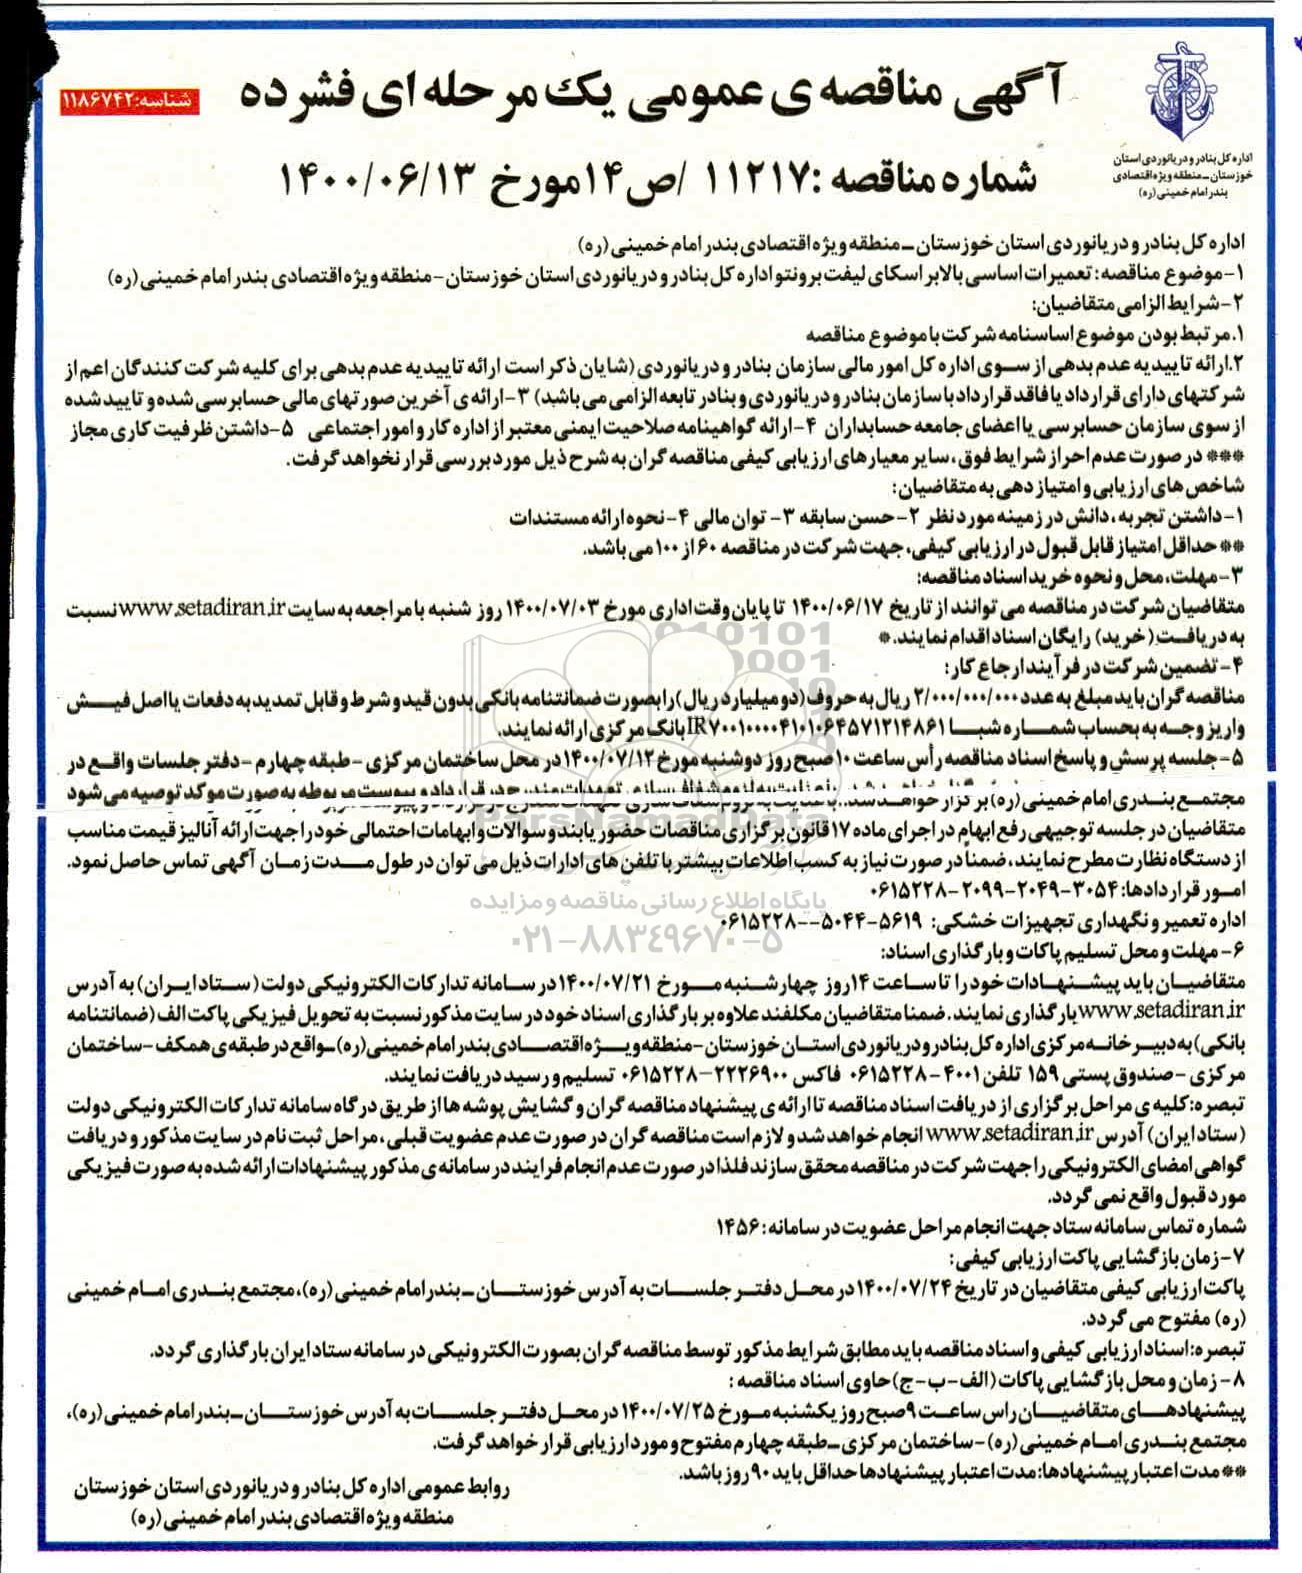 آگهی مناقصه ی عمومی یک مرحله ای فشرده
شناسه:۱۱۸۶۷۴۲
اداره کل بنادر و دریانوردی استان
خوزستان ـ منطقه ویژه اقتصادی
بندر امام خمینی (ره)
شماره مناقصه :۱۱۲۱۷ /ص۱۴مورخ ۱۴۰۰/۰۶/۱۳
اداره کل بنادر و دریانوردی استان خوزستان ـ منطقه ویژه اقتصادی بندر امام خمینی (ره)
۱-موضوع مناقصه: تعمیرات اساسی بالابر اسکای لیفت برونتو اداره کل بنادر و دریانوردی استان خوزستان -منطقه ویژه اقتصادی بندر امام خمینی (ره)
۲-شرایط الزامی متقاضیان:
۱.مرتبط بودن موضوع اساسنامه شرکت با موضوع مناقصه
۲.ارائه تاییدیه عدم بدهی از سوی اداره کل امور مالی سازمان بنادر و دریانوردی (شایان ذکر است ارائه تاییدیه عدم بدهی برای کلیه شرکت کنندگان اعم از
شرکتهای دارای قرارداد یا فاقد قرارداد با سازمان بنادر و دریانوردی و بنادر تابعه الزامی می باشد) ۳-ارائه ی آخرین صورتهای مالی حسابرسی شده و تایید شده
از سوی سازمان حسابرسی یا اعضای جامعه حسابداران ۴-ارائه گواهینامه صلاحیت ایمنی معتبر از اداره کار و امور اجتماعی ۵-داشتن ظرفیت کاری مجاز
*** در صورت عدم احراز شرایط فوق، سایر معیارهای ارزیابی کیفی مناقصه گران به شرح ذیل مورد بررسی قرار نخواهد گرفت.
شاخص های ارزیابی و امتیاز دهی به متقاضیان:
۱-داشتن تجربه، دانش در زمینه مورد نظر ۲-حسن سابقه ۳- توان مالی ۴-نحوه ارائه مستندات
** حداقل امتیاز قابل قبول در ارزیابی کیفی، جهت شرکت در مناقصه ۶۰ از ۱۰۰ می باشد.
۳-مهلت، محل و نحوه خرید اسناد مناقصه:
متقاضیان شرکت در مناقصه می توانند از تاریخ ۱۴۰۰/۰۶/۱۷ تا پایان وقت اداری مورخ ۱۴۰۰/۰۷/۰۳ روز شنبه با مراجعه به سایت www.setadiran.ir نسبت
به دریافت (خرید) رایگان اسناد اقدام نمایند.*
۴-تضمین شرکت در فرآیند ارجاع کار:
مناقصه گران باید مبلغ به عدد ۲/۰۰۰/۰۰۰/۰۰۰ ریال به حروف (دو میلیارد ریال) را بصورت ضمانتنامه بانکی بدون قید و شرط و قابل تمدید به دفعات یا اصل فیش
واریز وجه به بحساب شماره شبا IR۷۰۰۱۰۰۰۰۴۱۰۱۰۶۴۵۷۱۲۱۴۸۶۱ بانک مرکزی ارائه نمایند.
۵-جلسه پرسش و پاسخ اسناد مناقصه رأس ساعت ۱۰صبح روز دوشنبه مورخ ۱۴۰۰/۰۷/۱۲ در محل ساختمان مرکزی -طبقه چهارم -دفتر جلسات واقع در
مجتمع بندری امام خمینی (ره) برگزار خواهد شد. با عنایت به لزوم شفاف سازی تعهدات مندرج در قرارداد و پیوست مربوطه به صورت موکد توصیه می شود
متقاضیان در جلسه توجیهی رفع ابهام در اجرای ماده ۱۷ قانون برگزاری مناقصات حضور یابند و سوالات و ابهامات احتمالی خود را جهت ارائه آنالیز قیمت مناسب
از دستگاه نظارت مطرح نمایند، ضمناً در صورت نیاز به کسب اطلاعات بیشتر با تلفن های ادارات ذیل می توان در طول مدت زمان آگهی تماس حاصل نمود.
امور قراردادها: ۳۰۵۴-۲۰۴۹-۲۰۹۹-۰۶۱۵۲۲۸
اداره تعمیر و نگهداری تجهیزات خشکی: ۵۶۱۹-۵۰۴۴--۰۶۱۵۲۲۸
۶-مهلت و محل تسلیم پاکات و بارگذاری اسناد:
متقاضیان باید پیشنهادات خود را تا ساعت ۱۴روز چهارشنبه مورخ ۱۴۰۰/۰۷/۲۱ در سامانه تدارکات الکترونیکی دولت (ستاد ایران) به آدرس
www.setadiran.ir بارگذاری نمایند. ضمنا متقاضیان مکلفند علاوه بر بارگذاری اسناد خود در سایت مذکور نسبت به تحویل فیزیکی پاکت الف (ضمانتنامه
بانکی) به دبیرخانه مرکزی اداره کل بنادر و دریانوردی استان خوزستان -منطقه ویژه اقتصادی بندر امام خمینی (ره) ـ واقع در طبقه ی همکف -ساختمان
مرکزی -صندوق پستی ۱۵۹ تلفن ۴۰۰۱-۰۶۱۵۲۲۸ فاکس ۲۲۲۶۹۰۰-۰۶۱۵۲۲۸ تسلیم و رسید دریافت نمایند.
تبصره: کلیه ی مراحل برگزاری از دریافت اسناد مناقصه تا ارائه ی پیشنهاد مناقصه گران و گشایش پوشه ها از طریق درگاه سامانه تدارکات الکترونیکی دولت
(ستاد ایران) آدرس www.setadiran.ir انجام خواهد شد و لازم است مناقصه گران در صورت عدم عضویت قبلی، مراحل ثبت نام در سایت مذکور و دریافت
گواهی امضای الکترونیکی را جهت شرکت در مناقصه محقق سازند فلذا در صورت عدم انجام فرایند در سامانه ی مذکور پیشنهادات ارائه شده به صورت فیزیکی
مورد قبول واقع نمی گردد.
شماره تماس سامانه ستاد جهت انجام مراحل عضویت در سامانه: ۱۴۵۶
۷-زمان بازگشایی پاکت ارزیابی کیفی:
پاکت ارزیابی کیفی متقاضیان در تاریخ ۱۴۰۰/۰۷/۲۴ در محل دفتر جلسات به آدرس خوزستان ـ بندر امام خمینی (ره)، مجتمع بندری امام خمینی
(ره) مفتوح می گردد.
تبصره: اسناد ارزیابی کیفی و اسناد مناقصه باید مطابق شرایط مذکور توسط مناقصه گران بصورت الکترونیکی در سامانه ستاد ایران بارگذاری گردد.
۸-زمان و محل بازگشایی پاکات (الف-ب-ج) حاوی اسناد مناقصه :
پیشنهادهای متقاضیان راس ساعت ۹ صبح روز یکشنبه مورخ ۱۴۰۰/۰۷/۲۵ در محل دفتر جلسات به آدرس خوزستان ـ بندر امام خمینی (ره)،
مجتمع بندری امام خمینی (ره) -ساختمان مرکزی ـ طبقه چهارم مفتوح و مورد ارزیابی قرار خواهد گرفت.
** مدت اعتبار پیشنهادها: مدت اعتبار پیشنهادها حداقل باید ۹۰ روز باشد.
روابط عمومی اداره کل بنادر و دریانوردی استان خوزستان
منطقه ویژه اقتصادی بندر امام خمینی (ره)
ParsNamadData
پایگاه اطلاع رسانی مناقصه و مزایده
۰۲۱-۸۸۳۴۹۶۷۰-۵